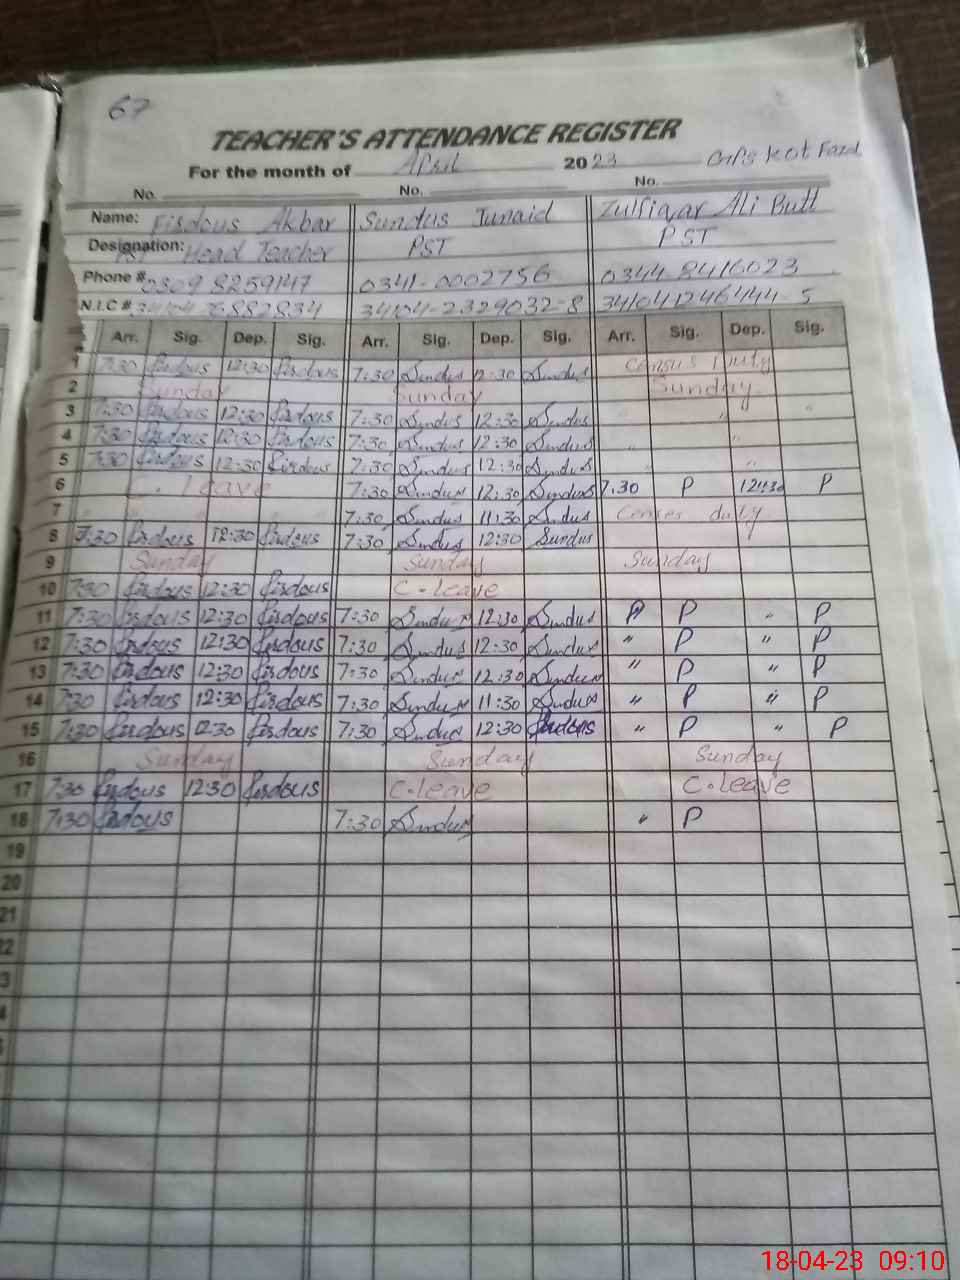 67
TEACHER'S ATTENDANCE REGISTER
For the month of April 2023 GPS Kot Fazd
No. No. No.
Name: Firdous Akbar Sundus Junaid Zulfiqar Ali Butt
Designation: PST Head Teacher PST PST
Phone # 0309 8259147 0341-0002756 0344 8416023
N.I.C # 882834 34104-2329032-8 341041246444-5
Arr. Sig. Dep. Sig. Arr. Sig. Dep. Sig. Arr. Sig. Dep. Sig.
1 7:30 firdous 12:30 firdous 7:30 Sundus 12:30 Sundus Census Duty
2 Sunday Sunday Sunday
3 7:30 firdous 12:30 firdous 7:30 Sundus 12:30 Sundus " " "
4 7:30 firdous 12:30 firdous 7:30 Sundus 12:30 Sundus " "
5 7:30 firdous 12:30 firdous 7:30 Sundus 12:30 Sundus " "
6 C. leave 7:30 Sundus 12:30 Sundus 7:30 P 12:30 P
7 " " 7:30 Sundus 11:30 Sundus Censes duty
8 7:30 firdous 12:30 firdous 7:30 Sundus 12:30 Sundus
9 Sunday Sunday Sunday
10 7:30 firdous 12:30 firdous C-leave
11 7:30 firdous 12:30 firdous 7:30 Sundus 12:30 Sundus P P " P
12 7:30 firdous 12:30 firdous 7:30 Sundus 12:30 Sundus " P " P
13 7:30 firdous 12:30 firdous 7:30 Sundus 12:30 Sundus " P " P
14 7:30 firdous 12:30 firdous 7:30 Sundus 11:30 Sundus " P " P
15 7:30 firdous 12:30 firdous 7:30 Sundus 12:30 firdous " P " P
16 Sunday Sunday Sunday
17 7:30 firdous 12:30 firdous C.leave C.leave
18 7:30 firdous 7:30 Sundus " P
19
20
21
22
3
4
18-04-23 09:10